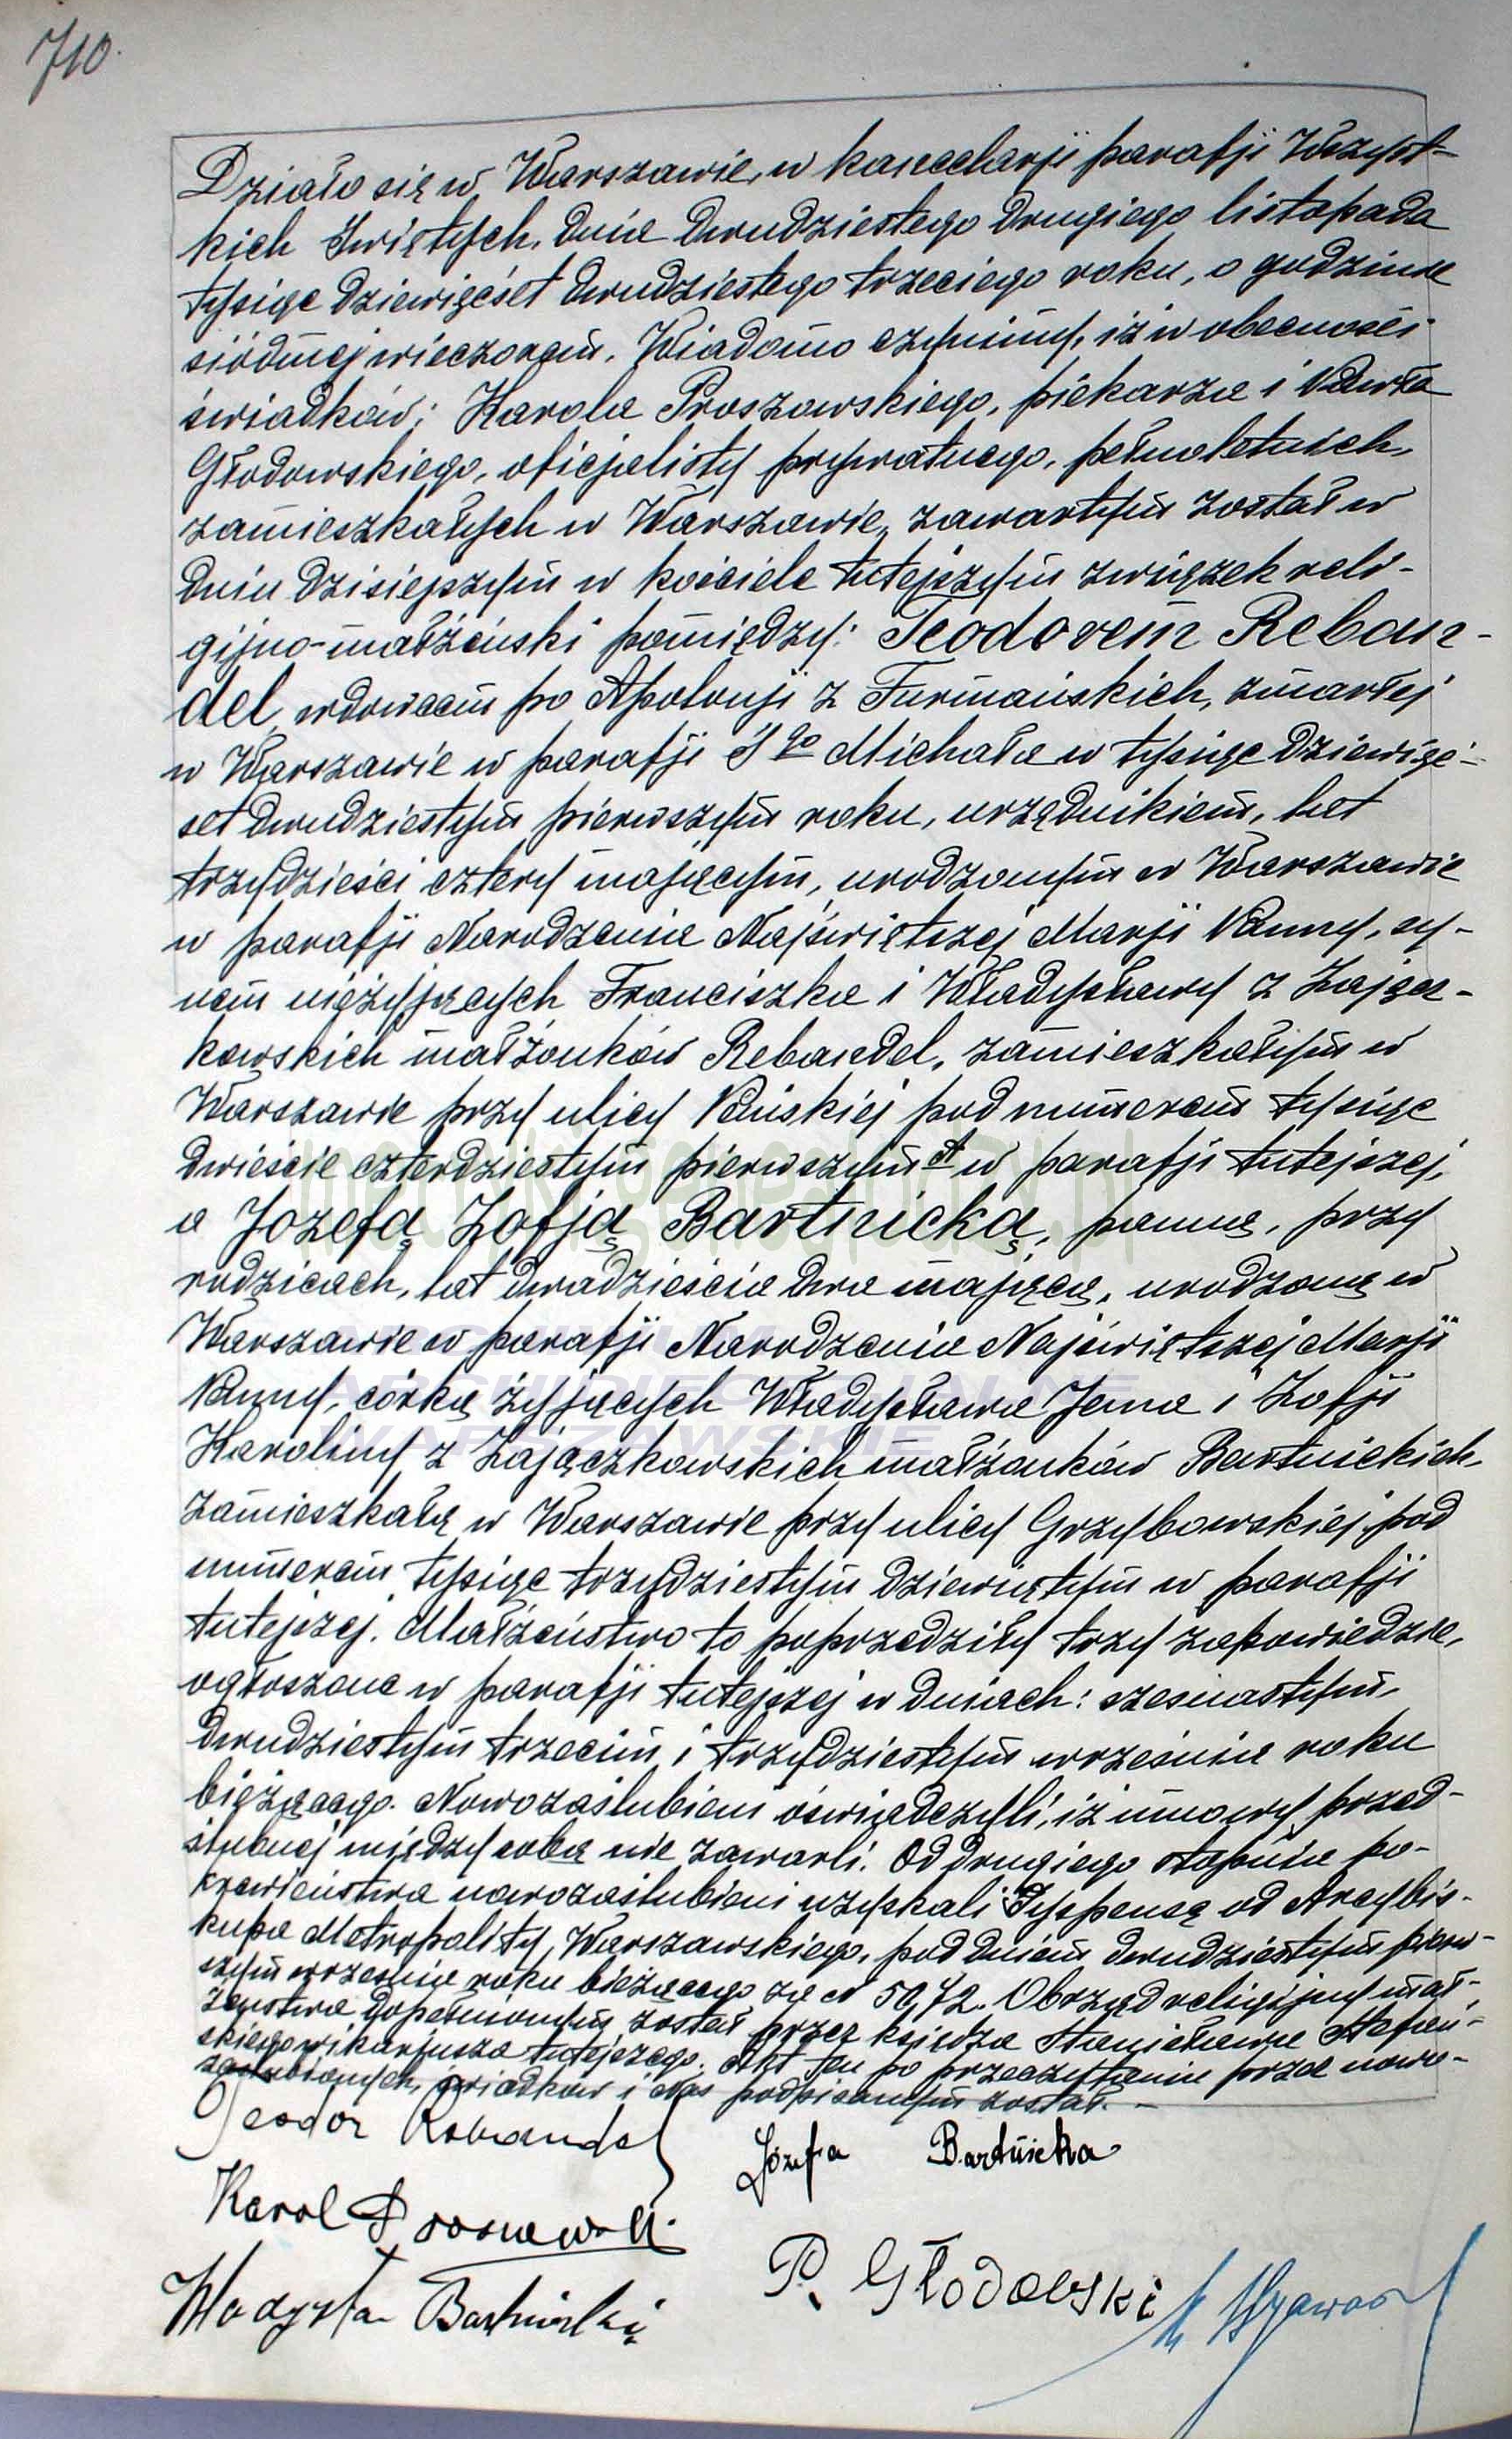 710.
Działo się w Warszawie, w kancelarji parafji Wszyst-
kich Świętych, dnia dwudziestego drugiego listopada
tysiąc dziewięćset dwudziestego trzeciego roku, o godzinie
siódmej wieczorem. Wiadomo czynimy, iż w obecności
świadków: Karola Proszowskiego, piekarza i Pawła
Głodowskiego, oficjalisty prywatnego, pełnoletnich,
zamieszkałych w Warszawie, zawartym został w
dniu dzisiejszym w kościele tutejszym związek reli-
gijno-małżeński pomiędzy: Teodorem Reban-
del, wdowcem po Apolonji z Furmańskich, zmarłej
w Warszawie w parafji Ś go Michała w tysiąc dziewięć-
set dwudziestym pierwszym roku, urzędnikiem, lat
trzydzieści cztery mającym, urodzonym w Warszawie
w parafji Narodzenia Najświętszej Marji Panny, sy-
nem nieżyjących Franciszka i Władysławy z Zającz-
kowskich małżonków Rebandel, zamieszkałym w
Warszawie przy ulicy Pańskiej pod numerem tysiąc
dwieście czterdziestym pierwszym A w parafji tutejszej,
a Józefą Zofją Bartnicką, panną, przy
rodzicach, lat dwadzieścia dwa mającą, urodzoną w
Warszawie w parafji Narodzenia Najświętszej Marji
Panny, córką żyjących Władysława Jana i Zofji
Karoliny z Zajączkowskich małżonków Bartnickich,
zamieszkałą w Warszawie przy ulicy Grzybowskiej pod
numerem tysiąc trzydziestym dziewiątym w parafji
tutejszej. Małżeństwo to poprzedziły trzy zapowiedzie,
ogłoszone w parafji tutejszej w dniach: szesnastym,
dwudziestym trzecim i trzydziestym września roku
bieżącego. Nowozaślubieni oświadczyli, iż umowy przed-
ślubnej między sobą nie zawarli. Od drugiego stopnia po-
krewieństwa nowozaślubieni uzyskali dyspensę od Arcybis-
kupa Metropolity Warszawskiego, pod dniem dwudziestym pierw-
szym września roku bieżącego za N 5072. Obrzęd religijny mał-
żeństwa dopełnionym został przez księdza Stanisława Stefań-
skiego wikarjusza tutejszego. Akt ten po przeczytaniu przez nowo-
zaślubionych, świadków i Nas podpisanym został. -
Teodor Rebandel
Józefa Bartnicka
Karol Proszowski
P. Głodowski
Władysław Bartnicki
metryki.genealodzy.pl
ARCHIWUM
ARCHIDIECEZJALNE
WARSZAWSKIE